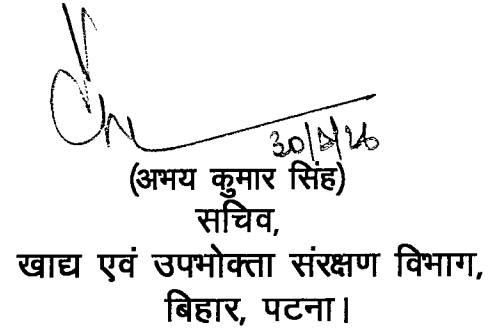 (अभय कुमार सिंह)
सचिव,
खाद्य एवं उपभोक्ता संरक्षण विभाग,
बिहार, पटना।